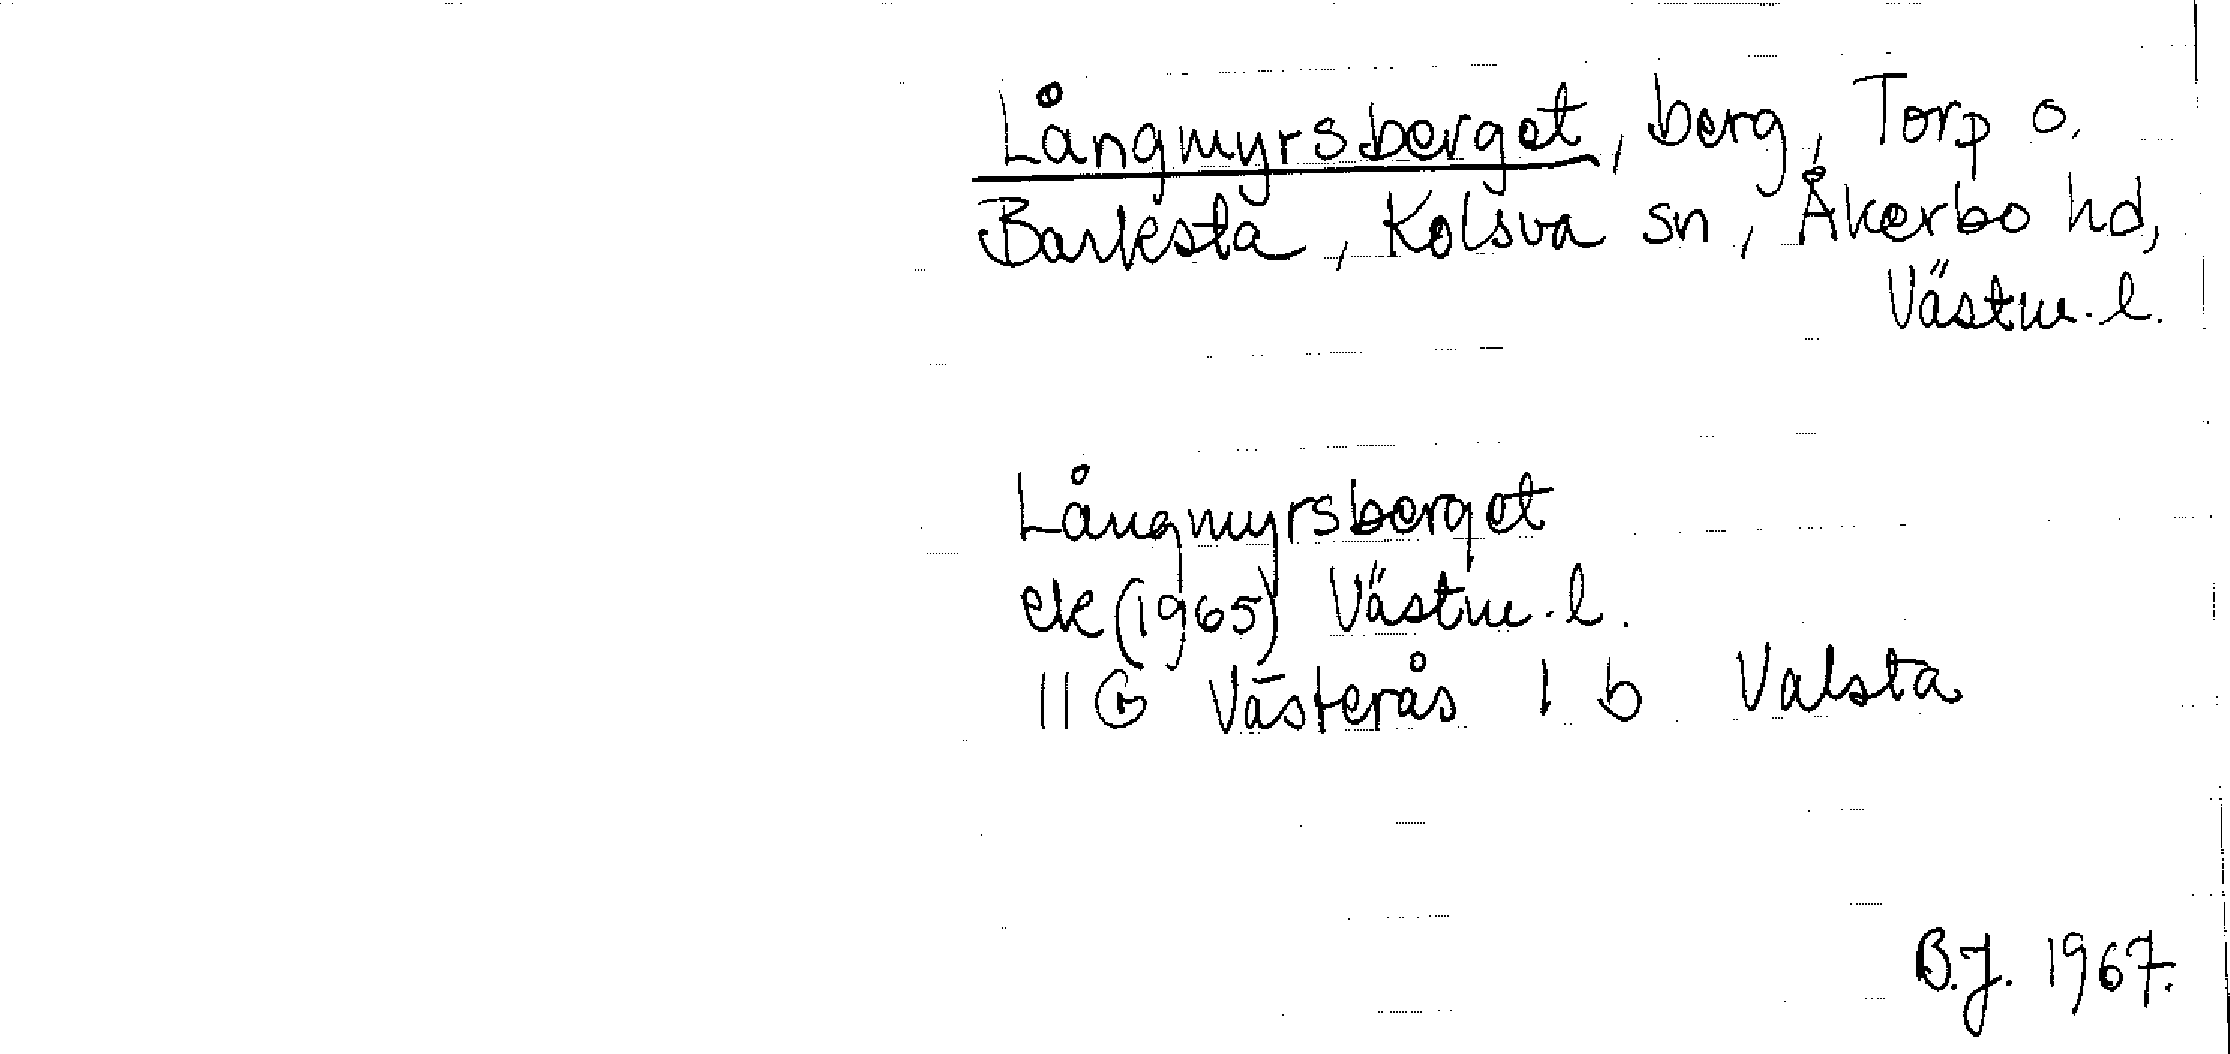 Långmyrsberget, berg, Torp o.
Barkesta, Kolsva sn, Åkerbo hd,
Västm. l.
Långmyrsberget
ek (1965) Västm. l.
11 G Västerås 1 b Valsta
B.J. 1967.